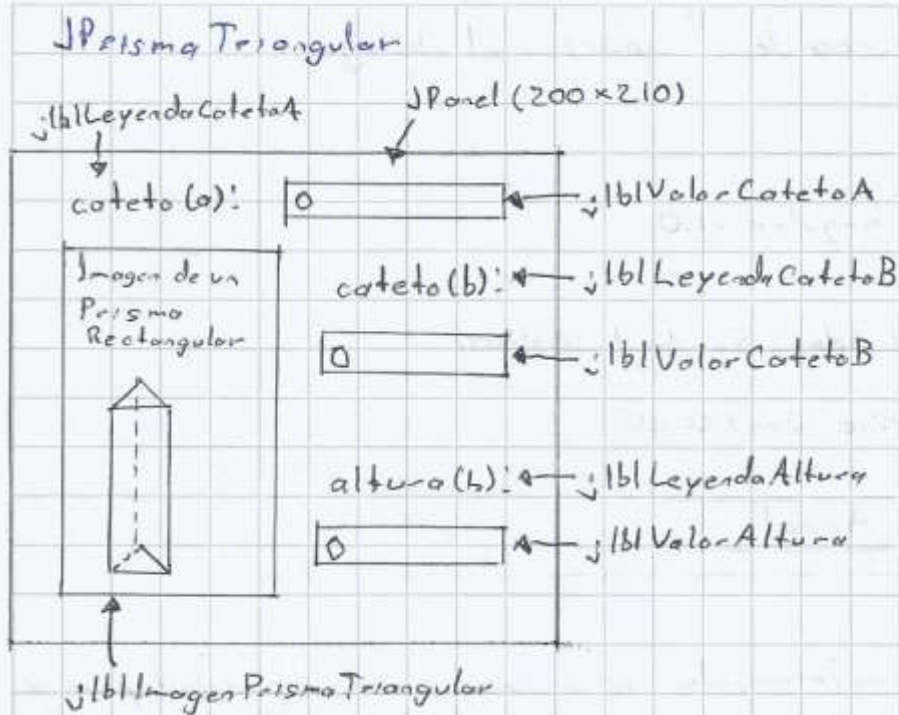 JPrismaTriangular
jlblLeyendaCatetoA
JPanel (200×210)
cateto(a):
0
jlblValorCatetoA
Imagen de un
Prisma
Rectangular
cateto(b):
jlblLeyendaCatetoB
0
jlblValorCatetoB
altura(h):
jlblLeyendaAltura
0
jlblValorAltura
jlblImagenPrismaTriangular